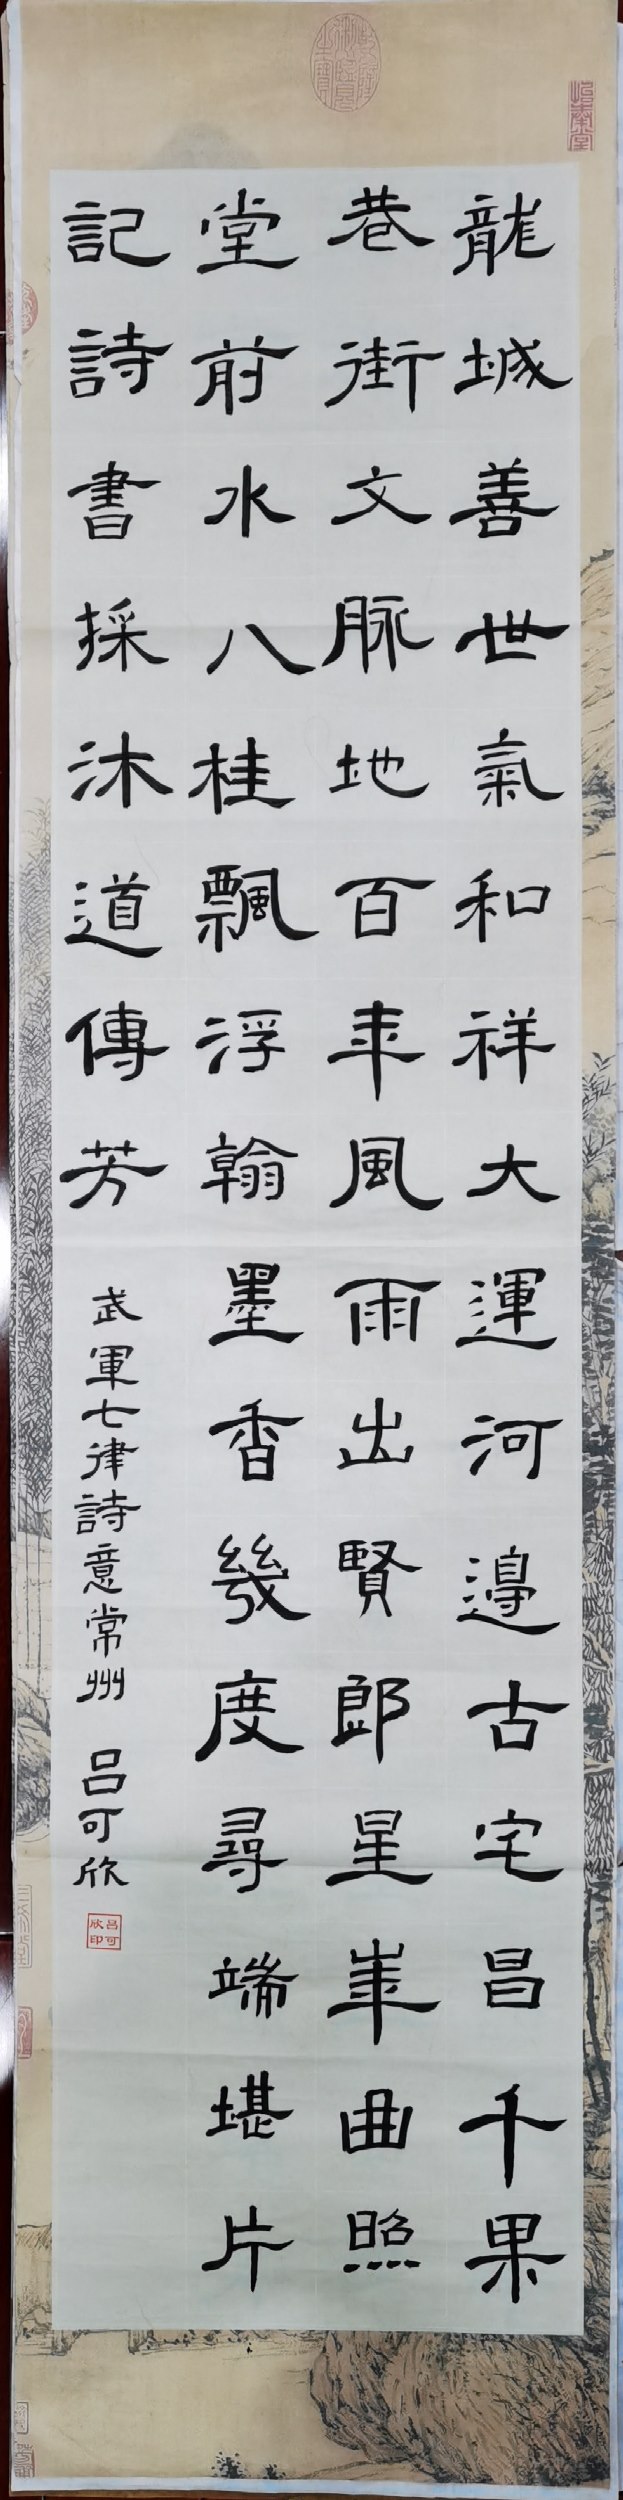 龍城善世氣和祥大運河邉古宅昌千果
巷街文脉地百年風雨出賢郎星峯曲照
堂前水八桂飄浮翰墨香幾度尋端堪片
記詩書採沐道傳芳
武軍七律詩意常州 吕可欣
吕可欣印